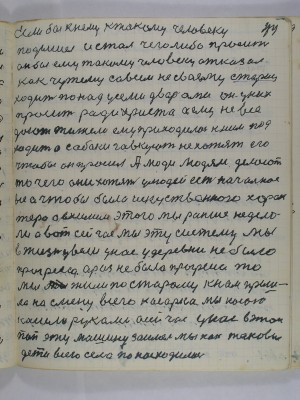 Если бы к нему к такому человеку
подошел и стал чего либо просит
он бы ему такому человеку отказал
как чужему совсем не своему старец
ходит по над усеми дварами он у них
просит ради христа а ему не все
дают тяжело ему приходилос к ним под
ходит а собаки гавкуют не хотят его
чтобы он просил А люди людям делают
то чего они хотят у людей ест началное
не а чтобы была искуственного харак
тера а в жизни этого мы ранше не дело
ли а вот сейчас мы эту систему мы
в жизнь увели у нас у деревни не было
прогреса, а раз не было прогреса то
мы жили по старому к нам пришло
на смену всего касарка мы косою
касили руками, а сей час у нас в этом
эту машину завели мы как таковы
дети всего села понаходили